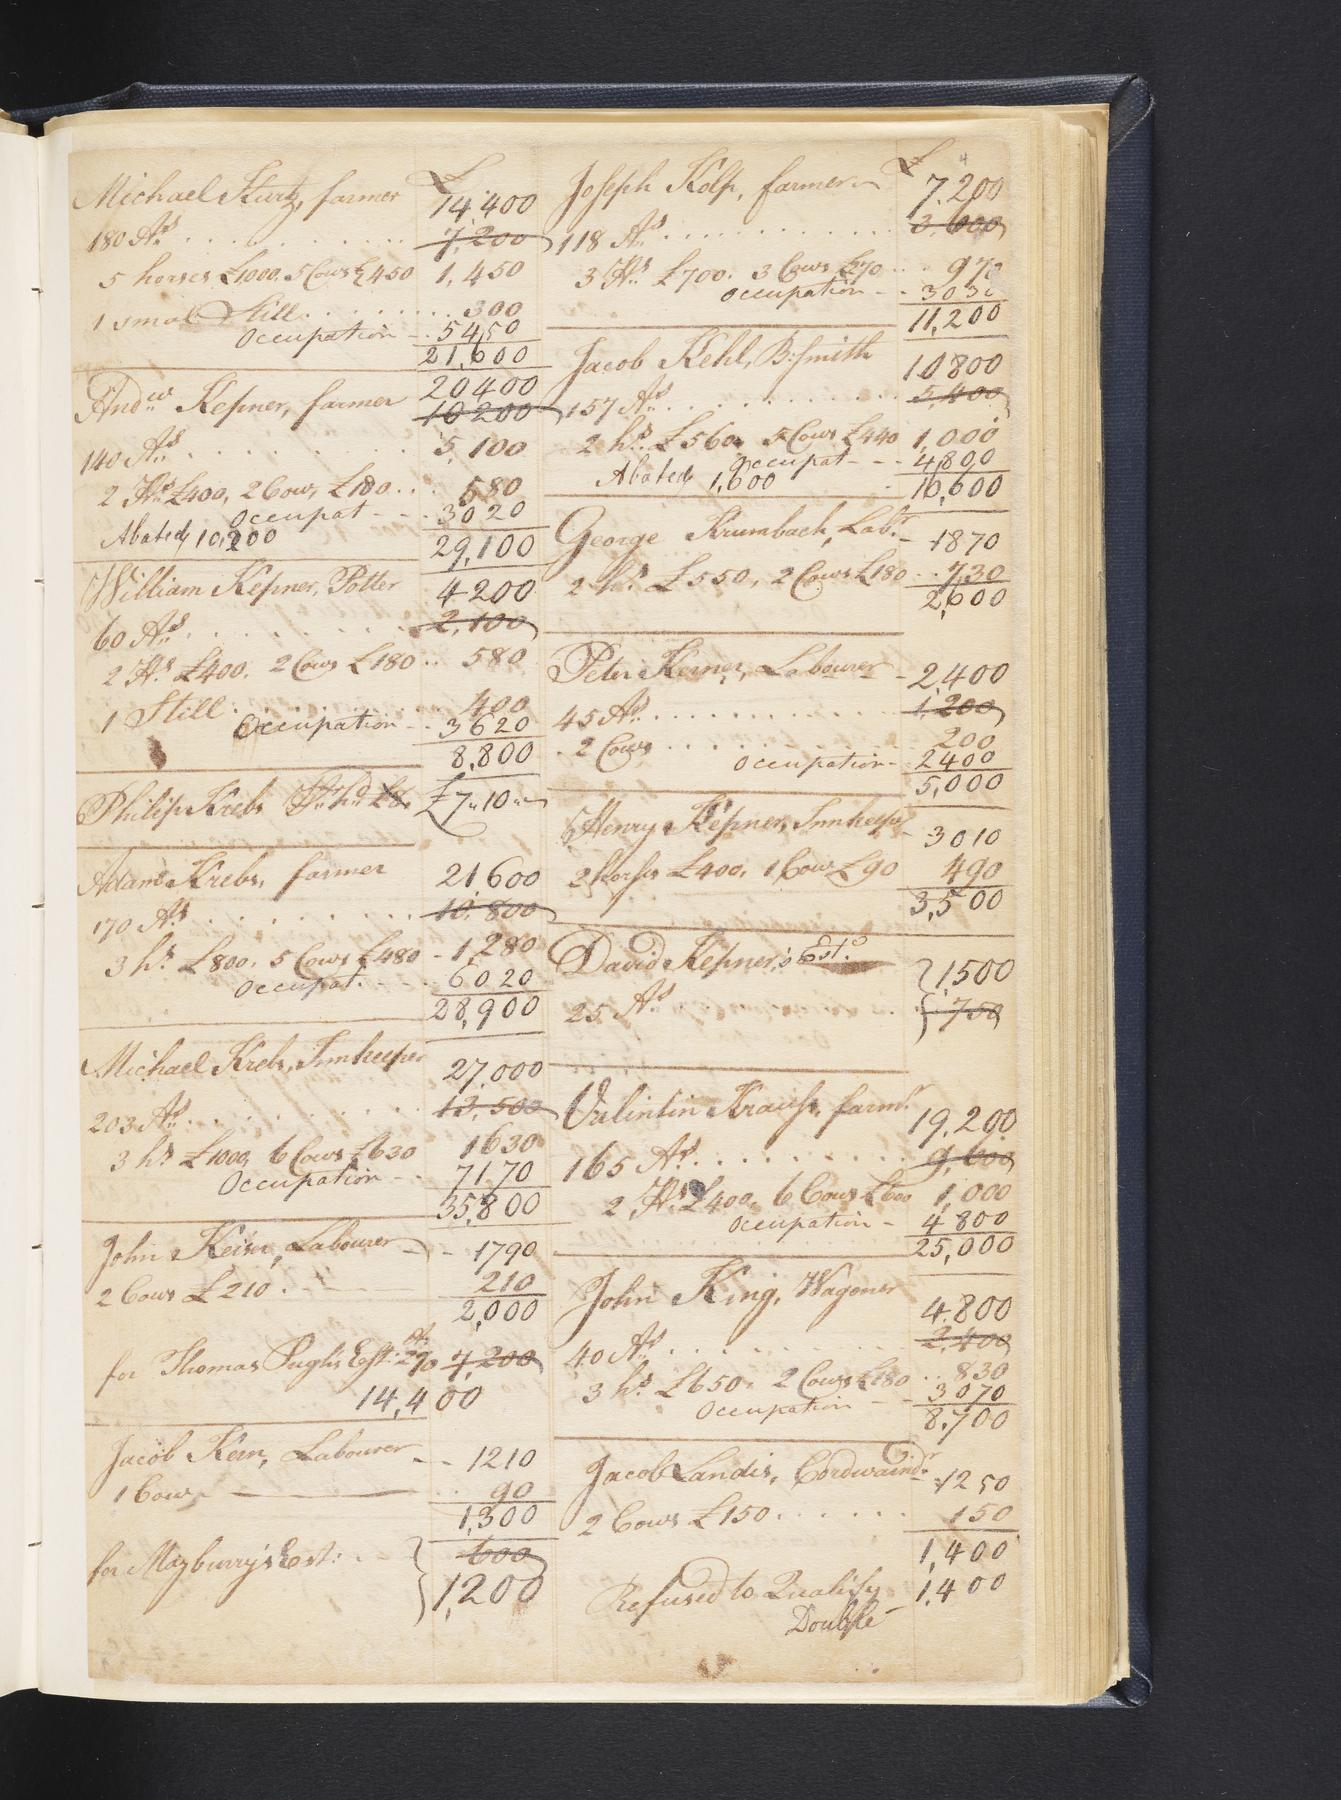 £
Michael Kurtz, farmer 14,400
180 As. . . . . . . . . . 7,200
5 horses £1000. 5 Cows £450 1,450
1 smal Still . . . . . . . . 300
Occupation - . 5450
21,600
20400
Andw. Kepner, farmer 10200
140 As. . . . . . . . . 5,100
2 Hs. £400, 2 Cows, £180 . . . 580
Occupat - - . 3020
Abated, 10,200 29,100
William Kepner, Potter 4200
60 As. . . . . . . . . 2,100
2 Hs. £400. 2 Cows £180 . . 580
1 Still . . . . . . . . 400
Occupation - . 3620
8,800
Philip Krebs £7,,10,,-
Adam Krebs, farmer 21,600
170 As. . . . . . . . . 10,800
3 hs. £800. 5 Cows £480 - 1,280
Occupat. - - . 6020
28,900
Michael Krebs, Innkeeper 27,000
203 As. . . . . . . . . 13,500
3 hs. £1000, 6 Cows £630 1630
Occupation - . 7170
35,800
John Keiser, Labourer - - 1790
2 Cows £210 . - - - 210
2,000
As.
for Thomas Pugh's Est: 290 7,200
14,400
Jacob Kern, Labourer - - 1210
1 Cow, - . . 90
1,300
for Mayburry's Est: . - } 600
1,200
£ 4
Joseph Kolp, farmer - 7,200
118 As. . . . . . . . . . . 3,600
3 Hs. £700. 3 Cows £270 . . . 970
Occupation - - . 3030
11,200
Jacob Kehl, B:smith 10800
157 As. . . . . . . . . . . 5,400
2 hs. £560. 5 Cows £440 1,000
Occupat - - - 4,800
Abated, 1,600 16,600
George Krumbach, Labr. - 1870
2 hs. £550, 2 Cows £180 . . 730
2,600
Peter Kerner, Labourer - 2,400
45 As. . . . . . . . . . . 1,200
2 Cows . . . . . . . . . 200
Occupation - . 2400
5,000
Henry Kepner, Innkeeper - 3010
2 horses £400, 1 Cow £90 490
3,500
David Kepner's Est. } 1,500
25 As. . . . } 750
Valintin Krauss, farmr. 19,200
165 As. . . . . . . . . . 9,600
2 Hs. £400, 6 Cows £600 1,000
Occupation - 4800
25,000
John King, Wagoner 4,800
40 As. . . . . . . . . . 2,400
3 hs. £650, 2 Cows £180 . . 830
Occupation - - 3070
8,700
Jacob Landis, Cordwaindr. - 1250
2 Cows £150 . . . . . . 150
1,400
Refused to Qualify 1,400
Double -